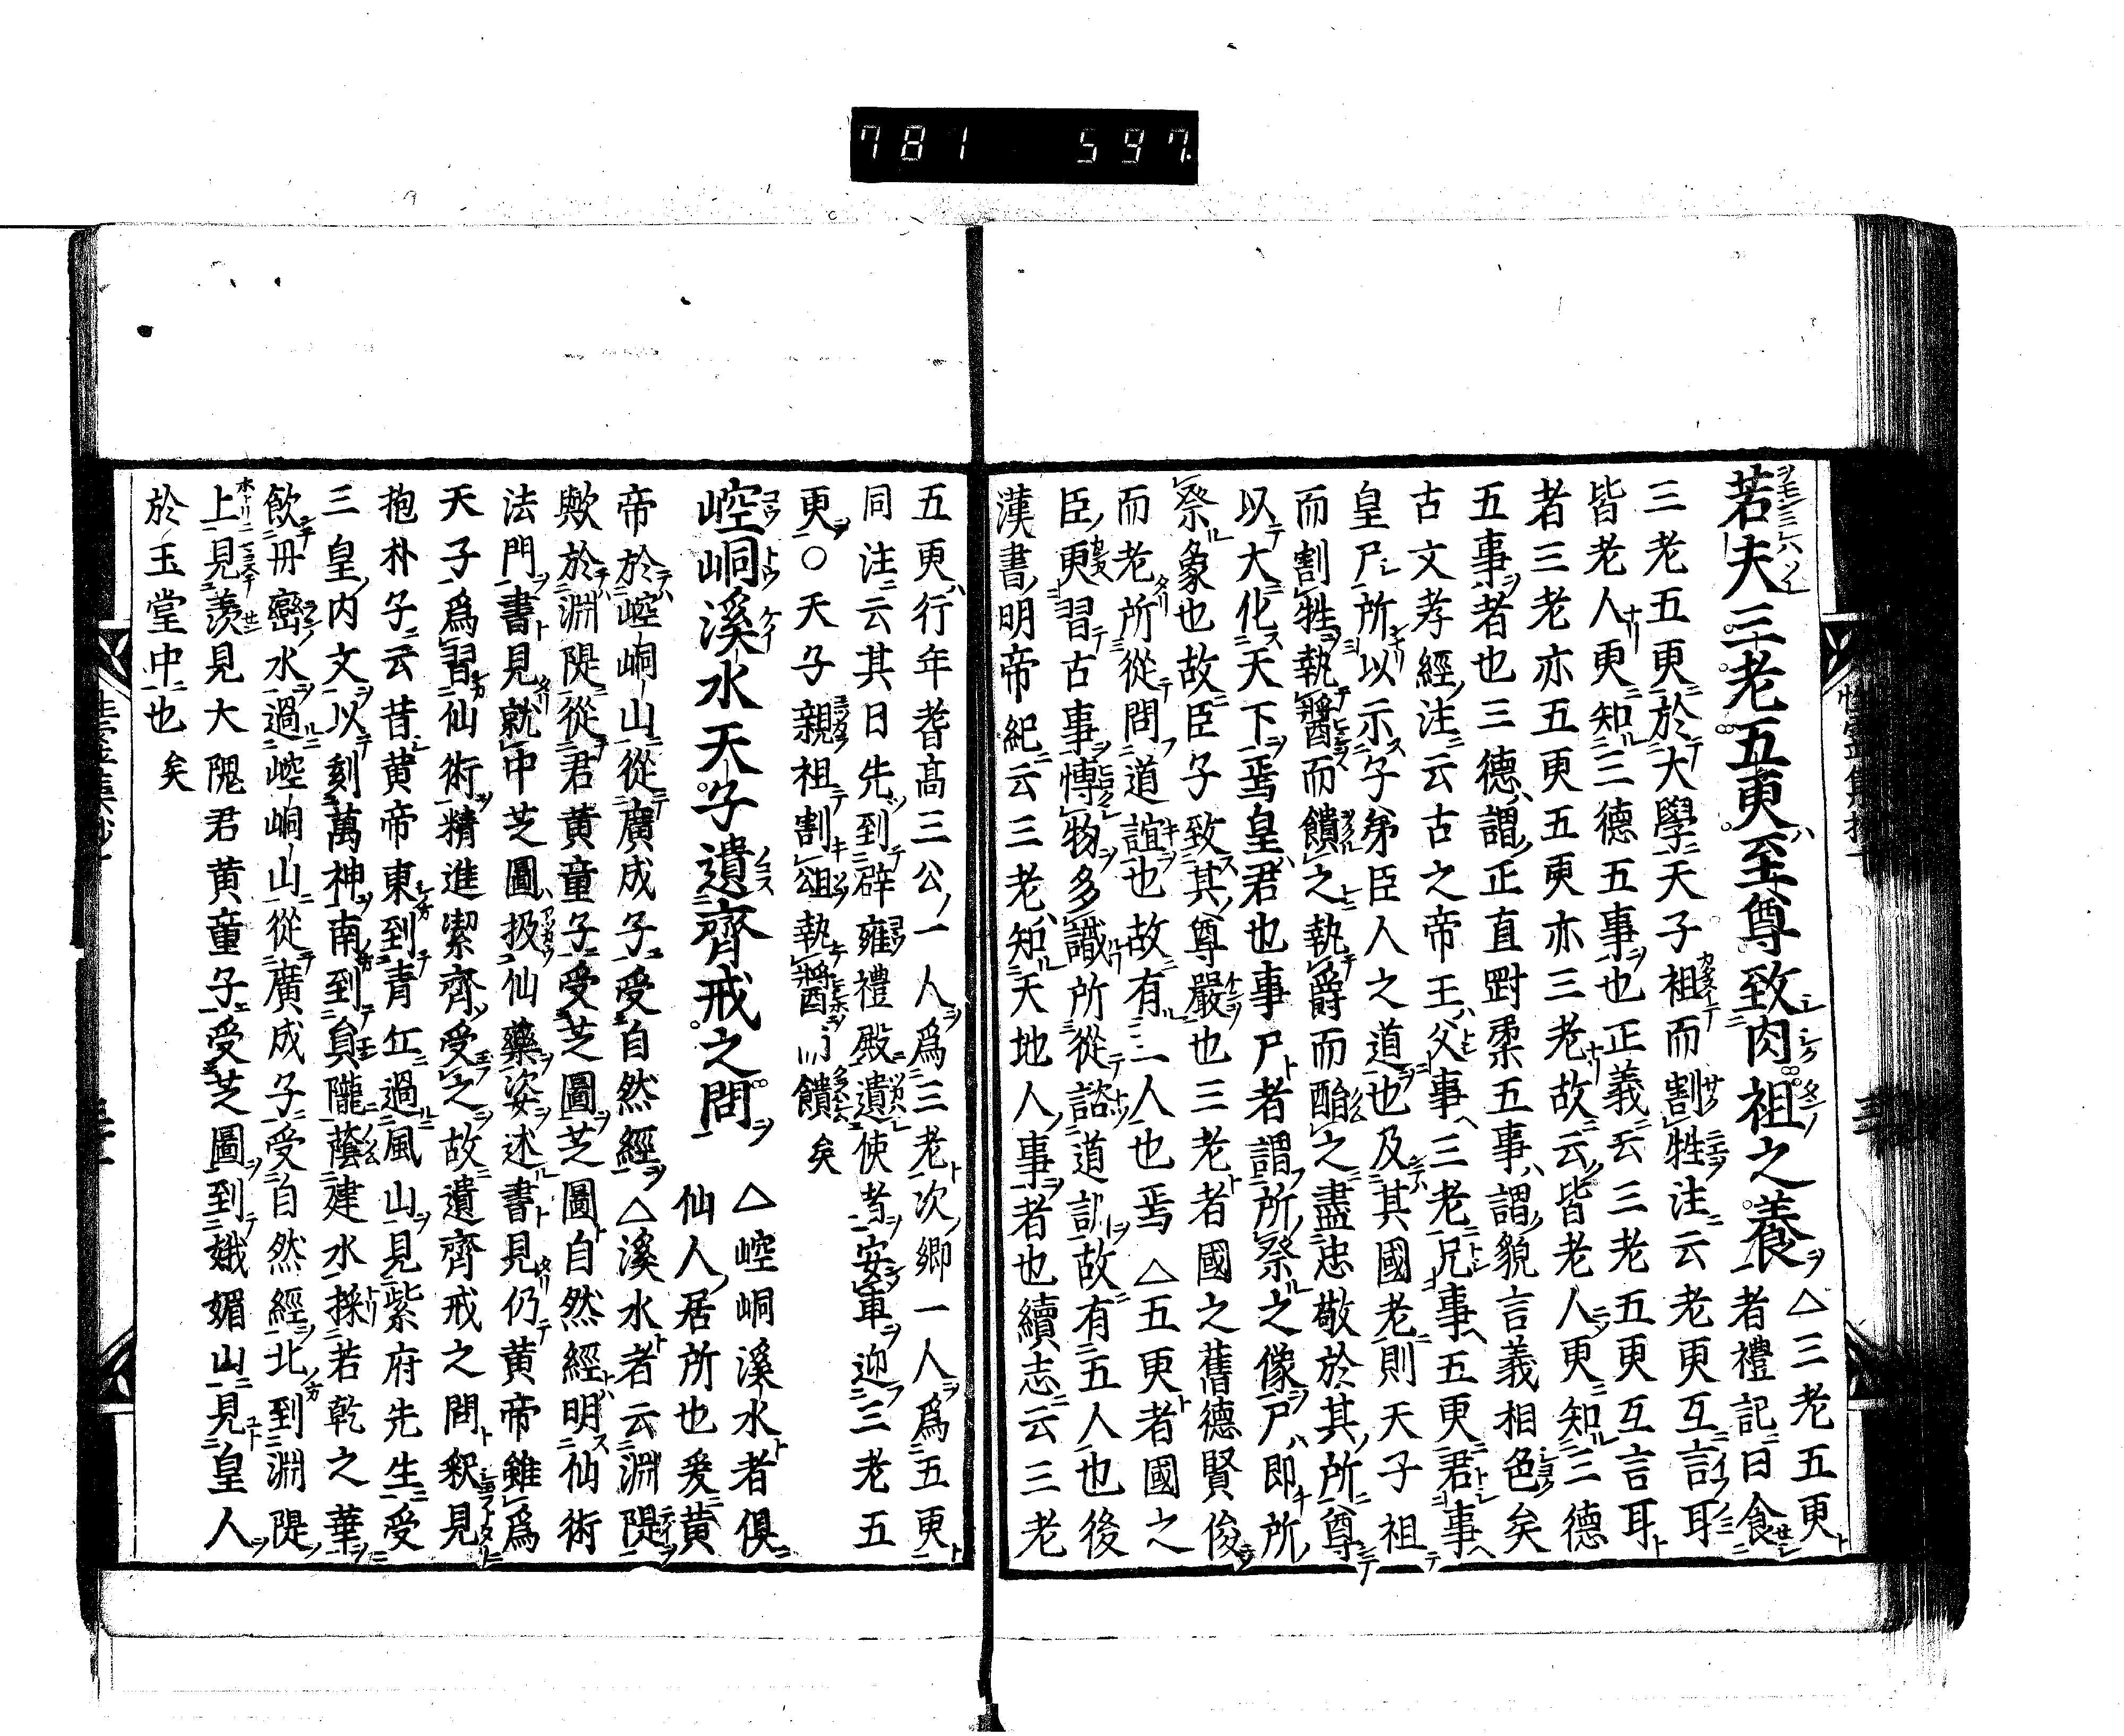 781 597.
若夫三老五更至尊致肉袒之養 △三老五更
者禮記曰食
三老五更於大學天子袒而割牲注云老更互言耳
皆老人更知三德五事也正義云三老五更互言耳
者三老亦五更五更亦三老故云皆老人更知三德
五事者也三德謂正直剛柔五事謂貌言義相色矣
古文孝經注云古之帝王父事三老兄事五更君事
皇尸所以示子弟臣人之道也及其國老則天子袒
而割牲執醬而饋之執爵而酳之盡忠敬於其所尊
以大化天下焉皇君也事尸者謂所祭之像尸即所
祭象也故臣子致其尊嚴也三老者國之舊德賢俊
而老所從問道誼也故有三人也焉 △五更者國之
臣更習古事博物多識所從諮道訓故有五人也後
漢書明帝紀云三老知天地人事者也續志云三老
五更行年耆高三公一人為三老次卿一人為五更
同注云其日先到辟雍禮殿遺使者安車迎三老五
更○天子親袒割俎執醬而饋矣
崆峒溪水天子遺齊戒之問 △崆峒溪水者俱
仙人居所也爰黄
帝於崆峒山從廣成子受自然經△溪水者云淵隄
歟於淵隄從君黄童子受芝圖芝圖自然經明仙術
法門書見就中芝圖扱仙藥姿述書見仍黄帝雖為
天子為習仙術精進潔齊受之故遺齊戒之問釈見
抱朴子云昔黄帝東到青丘過風山見紫府先生受
三皇内文以刻萬神南到員隴蔭建水採若乾之華
飲丹巒水過崆峒山從廣成子受自然經北到淵隄
上見羨見大隗君黄童子受芝圖到娥媚山見皇人
於玉堂中也矣